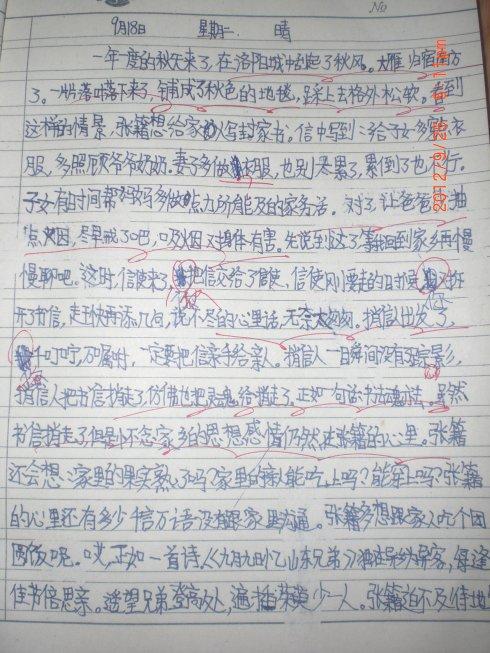 No
9月18日 星期二 晴
一年度的秋天来了,在洛阳城中刮起了秋风。大雁归宿南方
了。一片片落叶落下来了,铺成了秋色的地毯,踩上去格外松软。看到
这样的情景,张籍想给家人写封家书。信中写到:给子女多做衣
服,多照顾爷爷奶奶。妻子多做衣服,也别累了,累倒了也不行。
子女有时间帮妈妈多做点力所能及的家务活。对了,让爸爸少抽
点烟,尽早戒了吧,吸烟对身体有害。先说到这了,等我回到家乡再慢
慢聊吧。这时,信使来了,把信交给了信使,信使刚要走的时候,又拆
开了书信,赶快再添几句,说不尽的心里话,无奈太匆匆。捎信出发了,
千叮咛,万嘱咐,一定要把信亲手给亲人。捎信人一瞬间没有了踪影,
捎信人把书信捎走了,仿佛也把灵魂给捎走了。正如一句话书去魂去。虽然
书信捎走了但是怀念家乡的思想感情仍然在张籍的心里。张籍
还会想:家里的果实熟了吗?家里的人能吃上吗?能穿上吗?张籍
的心里还有多少千言万语没有跟家里沟通。张籍多想跟家人吃个团
圆饭呢。哎,正如一首诗《九月九日忆山东兄弟》独在异乡为异客,每逢
佳节倍思亲。遥望兄弟登高处,遍插茱萸少一人。张籍迫不及待地
2012/9/26